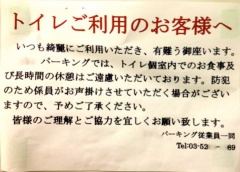 トイレご利用のお客様へ
いつも綺麗にご利用いただき、有難う御座います。
パーキングでは、トイレ個室内でのお食事及
び長時間の休憩はご遠慮いただいております。防犯
のため係員がお声掛けさせていただく場合がござい
ますので、予めご了承ください。
皆様のご理解とご協力を宜しくお願い致します。
パーキング従業員一同
Tel:03-52 - 89